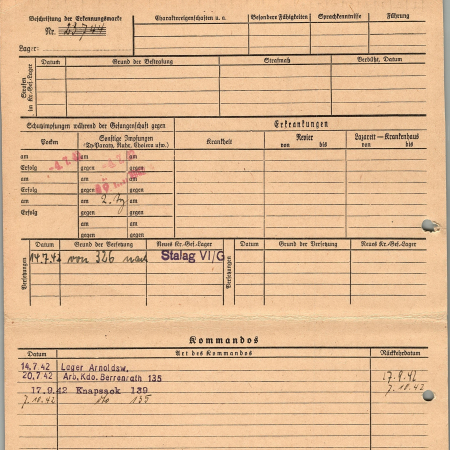 Beschriftung der Erkennungsmarke
Nr. 23744
Lager:
Charaktereigenschaften u. a.
Besondere Fähigkeiten
Sprachkenntnisse
Führung
Strafen im Kr.-Gef.-Lager
Datum
Grund der Bestrafung
Strafmaß
Verbüßt, Datum
Schutzimpfungen während der Gefangenschaft gegen
Pocken
Sonstige Impfungen
(Ty/Paraty, Ruhr, Cholera usw.)
Erkrankungen
Krankheit
Revier
von bis
Lazarett — Krankenhaus
von bis
am am am
Erfolg gegen gegen
am am am
Erfolg gegen gegen
am am am
Erfolg gegen gegen
am am
gegen gegen
Versetzungen
Datum
Grund der Versetzung
Neues Kr.-Gef.-Lager
Versetzungen
Datum
Grund der Versetzung
Neues Kr.-Gef.-Lager
14.7.42 von 326 nach Stalag VI/G
Kommandos
Datum
Art des Kommandos
Rückkehrdatum
14.7.42 Lager Arnoldsw.
20.7.42 Arb. Kdo. Berrenrath 135 17.9.42
17.9.42 Knapsack 139 7.10.42
7.10.42 135